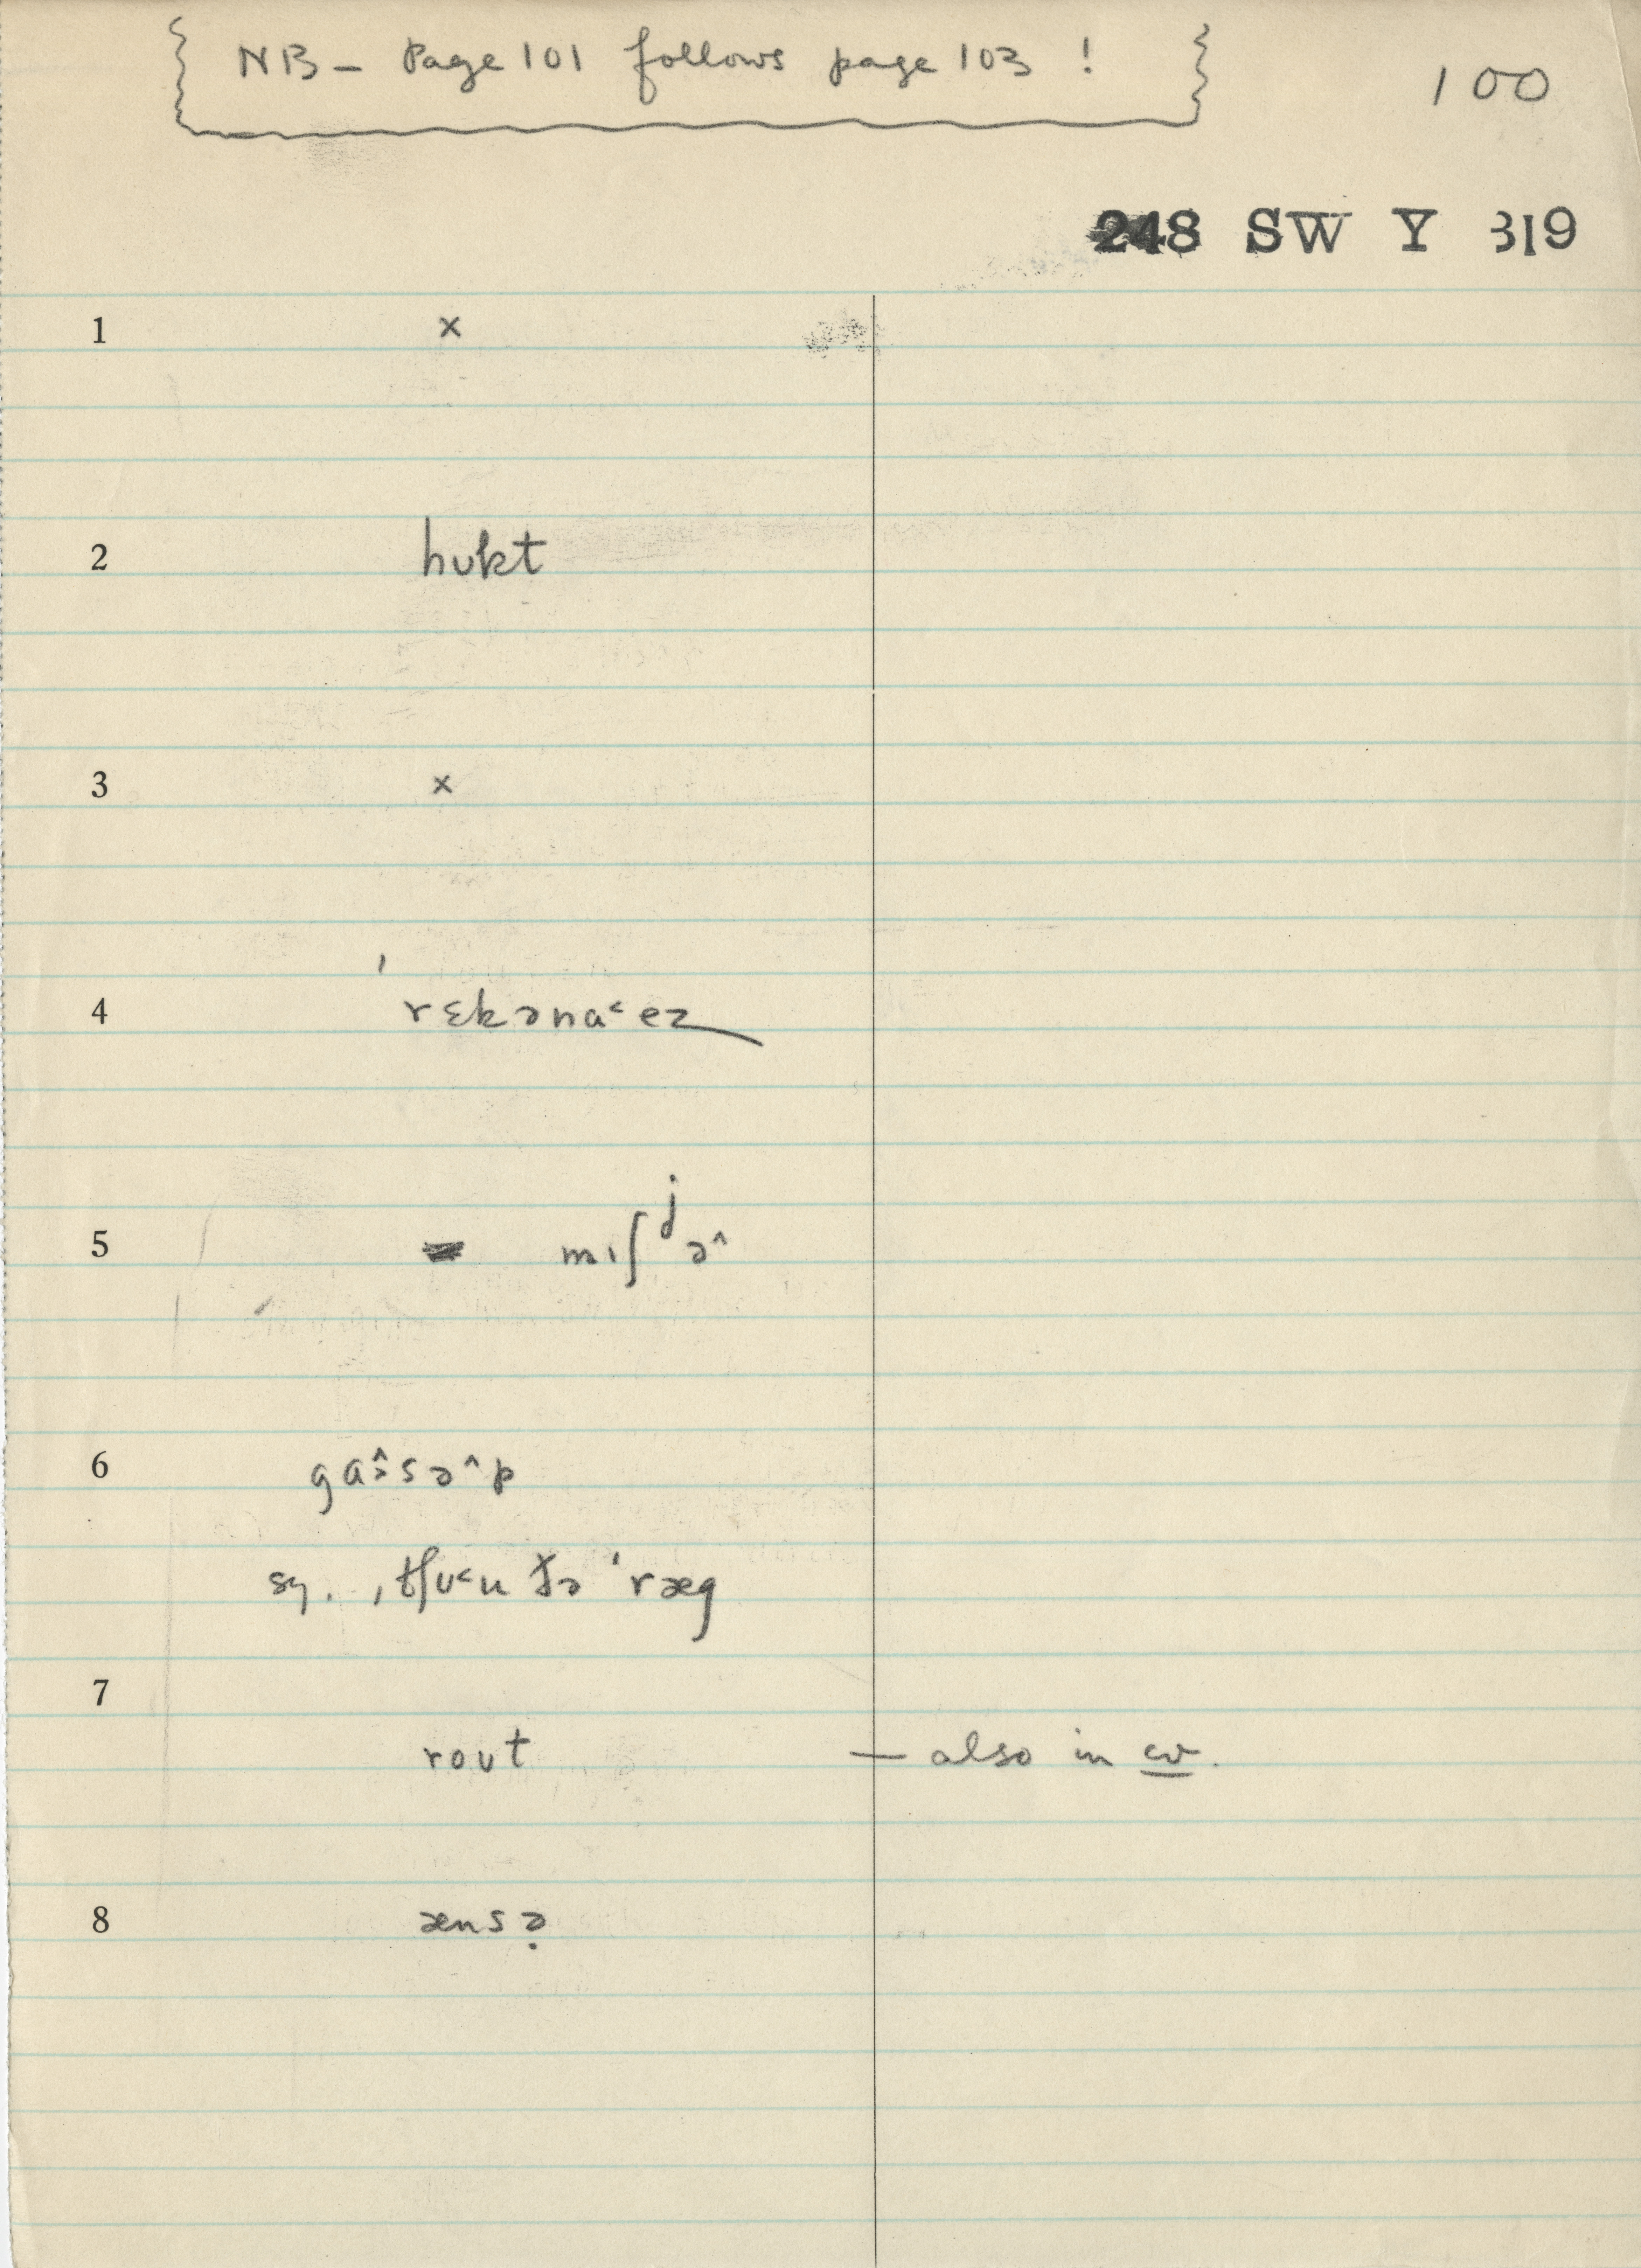 NB – Page 101 follows page 103 !
100
248 SW Y 319
1 ×
2 hʊkt
3 ×
4 ˈrɛkənaˑ˂ez
5 mɪʃʲə^
6 gɑ^ˑsə^p
sy. ˌtʃʊ˂u ðə ˈræg
7
roʊt – also in cv.
8 ænsə̣